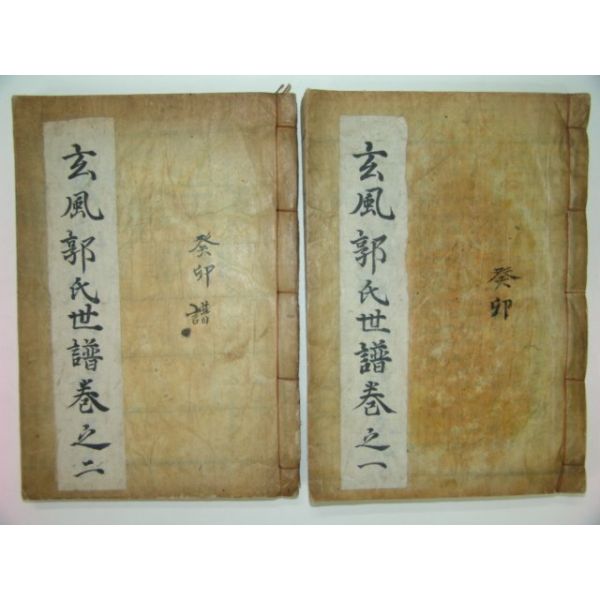 玄風郭氏世譜卷之二
癸卯譜
玄風郭氏世譜卷之一
癸卯